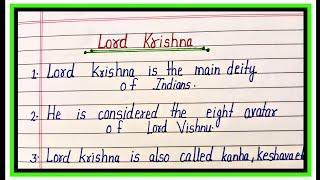 Lord Krishna
1. Lord krishna is the main deity
of Indians.
2. He is considered the eight avatar
of Lord Vishnu.
3. Lord krishna is also called kanha, keshava etc